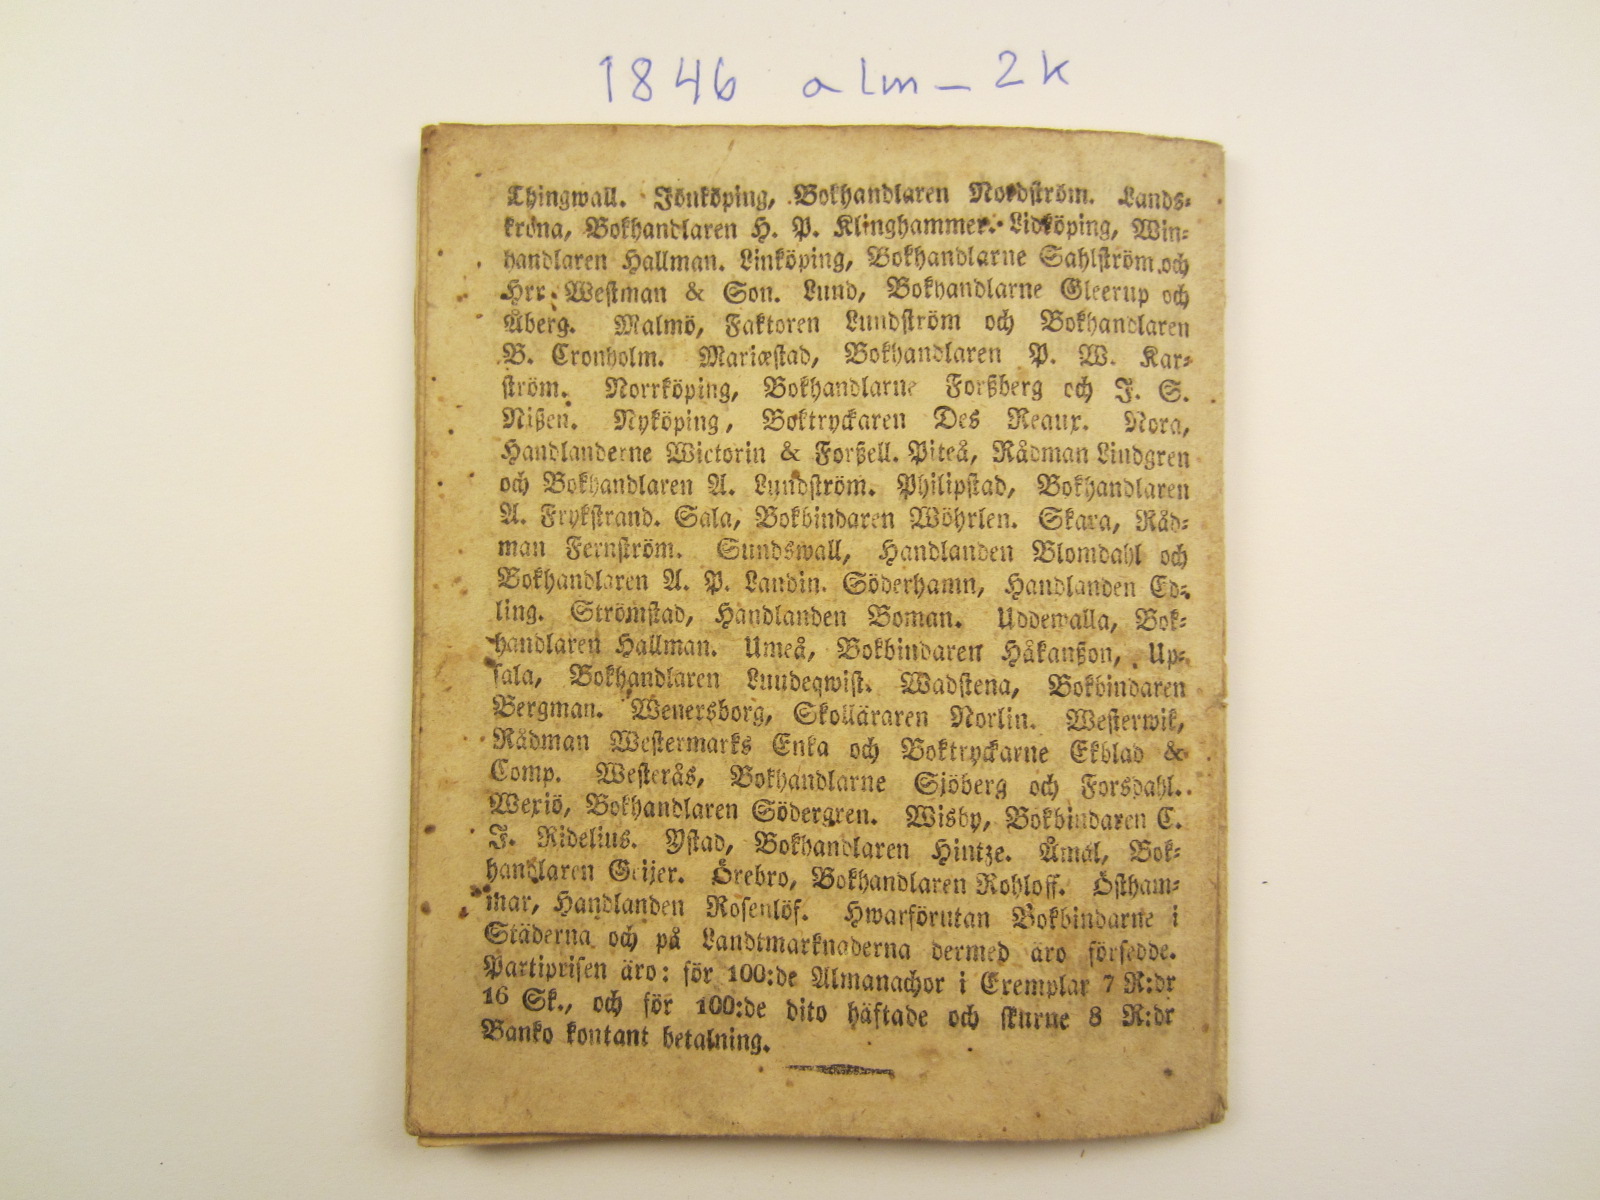 1846 alm_2k
Thingwall. Jönköping, Bokhandlaren Nordström. Lands-
krona, Bokhandlaren H. P. Klinghammer. Lidköping, Win-
handlaren Hallman. Linköping, Bokhandlarne Sahlström och
Hrr. Westman & Son. Lund, Bokhandlarne Gleerup och
Åberg. Malmö, Faktoren Lundström och Bokhandlaren
B. Cronholm. Mariæstad, Bokhandlaren P. W. Kar-
ström. Norrköping, Bokhandlarne Forßberg och J. S.
Nißen. Nyköping, Boktryckaren Des Reaux. Nora,
Handlanderne Wictorin & Forßell. Piteå, Rådman Lindgren
och Bokhandlaren A. Lundström. Philipstad, Bokhandlaren
A. Frykstrand. Sala, Bokbindaren Wöhrlen. Skara, Råd-
man Fernström. Sundswall, Handlanden Blomdahl och
Bokhandlaren A. P. Landin. Söderhamn, Handlanden Ed-
ling. Strömstad, Handlanden Boman. Uddewalla, Bok-
handlaren Hallman. Umeå, Bokbindaren Håkanßon, Up-
sala, Bokhandlaren Lundeqwist. Wadstena, Bokbindaren
Bergman. Wenersborg, Skolläraren Norlin. Westerwik,
Rådman Westermarks Enka och Boktryckarne Ekblad &
Comp. Westerås, Bokhandlarne Sjöberg och Forsdahl.
Wexiö, Bokhandlaren Södergren. Wisby, Bokbindaren C.
J. Ridelius. Ystad, Bokhandlaren Hintze. Åmål, Bok-
handlaren Geijer. Örebro, Bokhandlaren Rohloff. Östham-
mar, Handlanden Rosenlöf. Hwarförutan Bokbindarne i
Städerna och på Landtmarknaderna dermed äro försedde.
Partiprisen äro: för 100:de Almanachor i Exemplar 7 R:dr
16 Sk., och för 100:de dito häftade och skurne 8 R:dr
Banko kontant betalning.